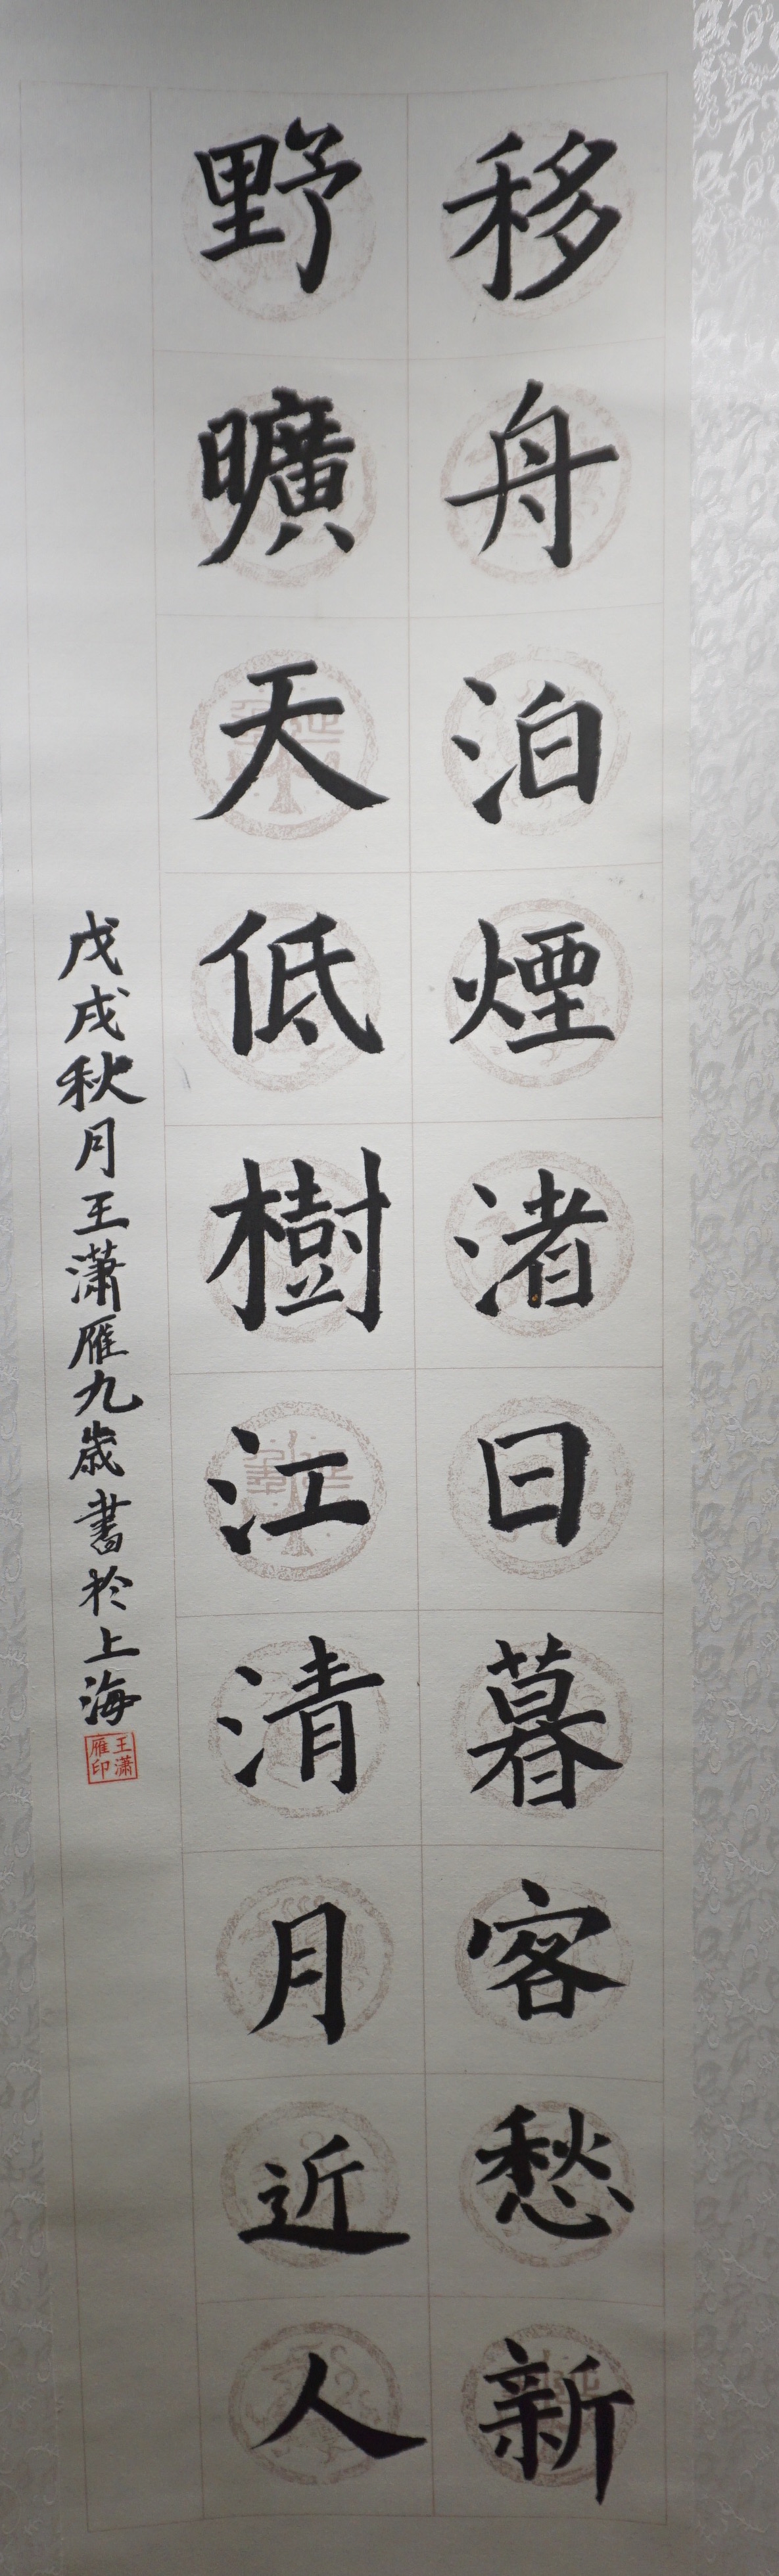 移舟泊煙渚日暮客愁新
野曠天低樹江清月近人
戊戌秋月王潇雁九歲書於上海
王潇雁印